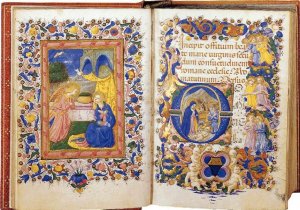 Incipit offitium be
te marie uirginis secu
dum consuetudinem
romane ecclesie. Ad
matutinum. Versus